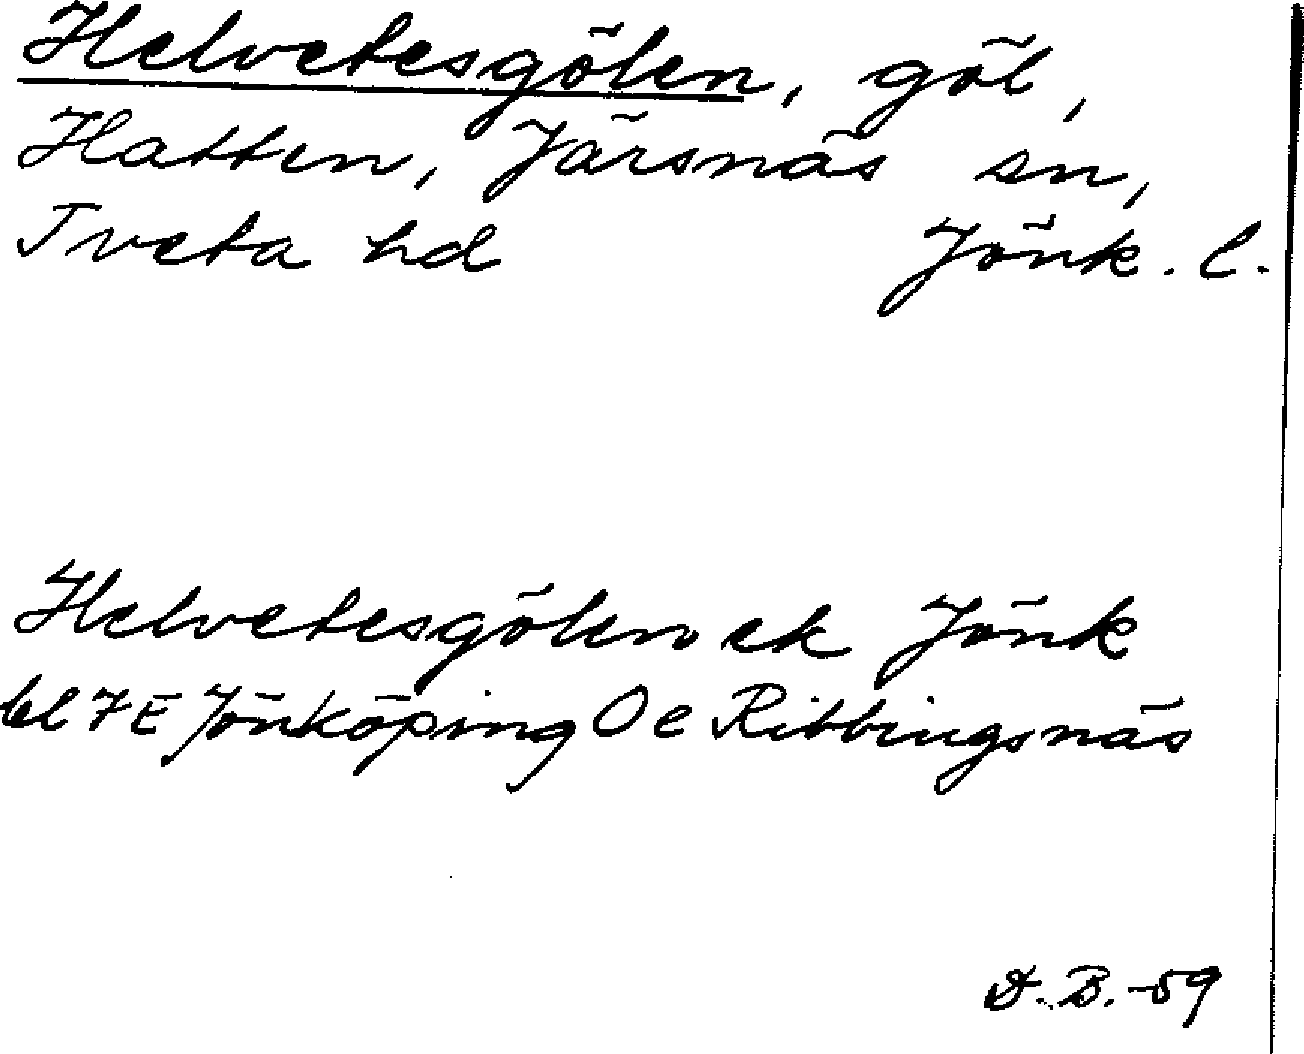 Helvetesgölen, göl,
Hatten, Järsnäs sn,
Tveta hd Jönk. l.
Helvetesgölen ek Jönk
bl 7E Jönköping Oe Ribbingsnäs
D. B. -59